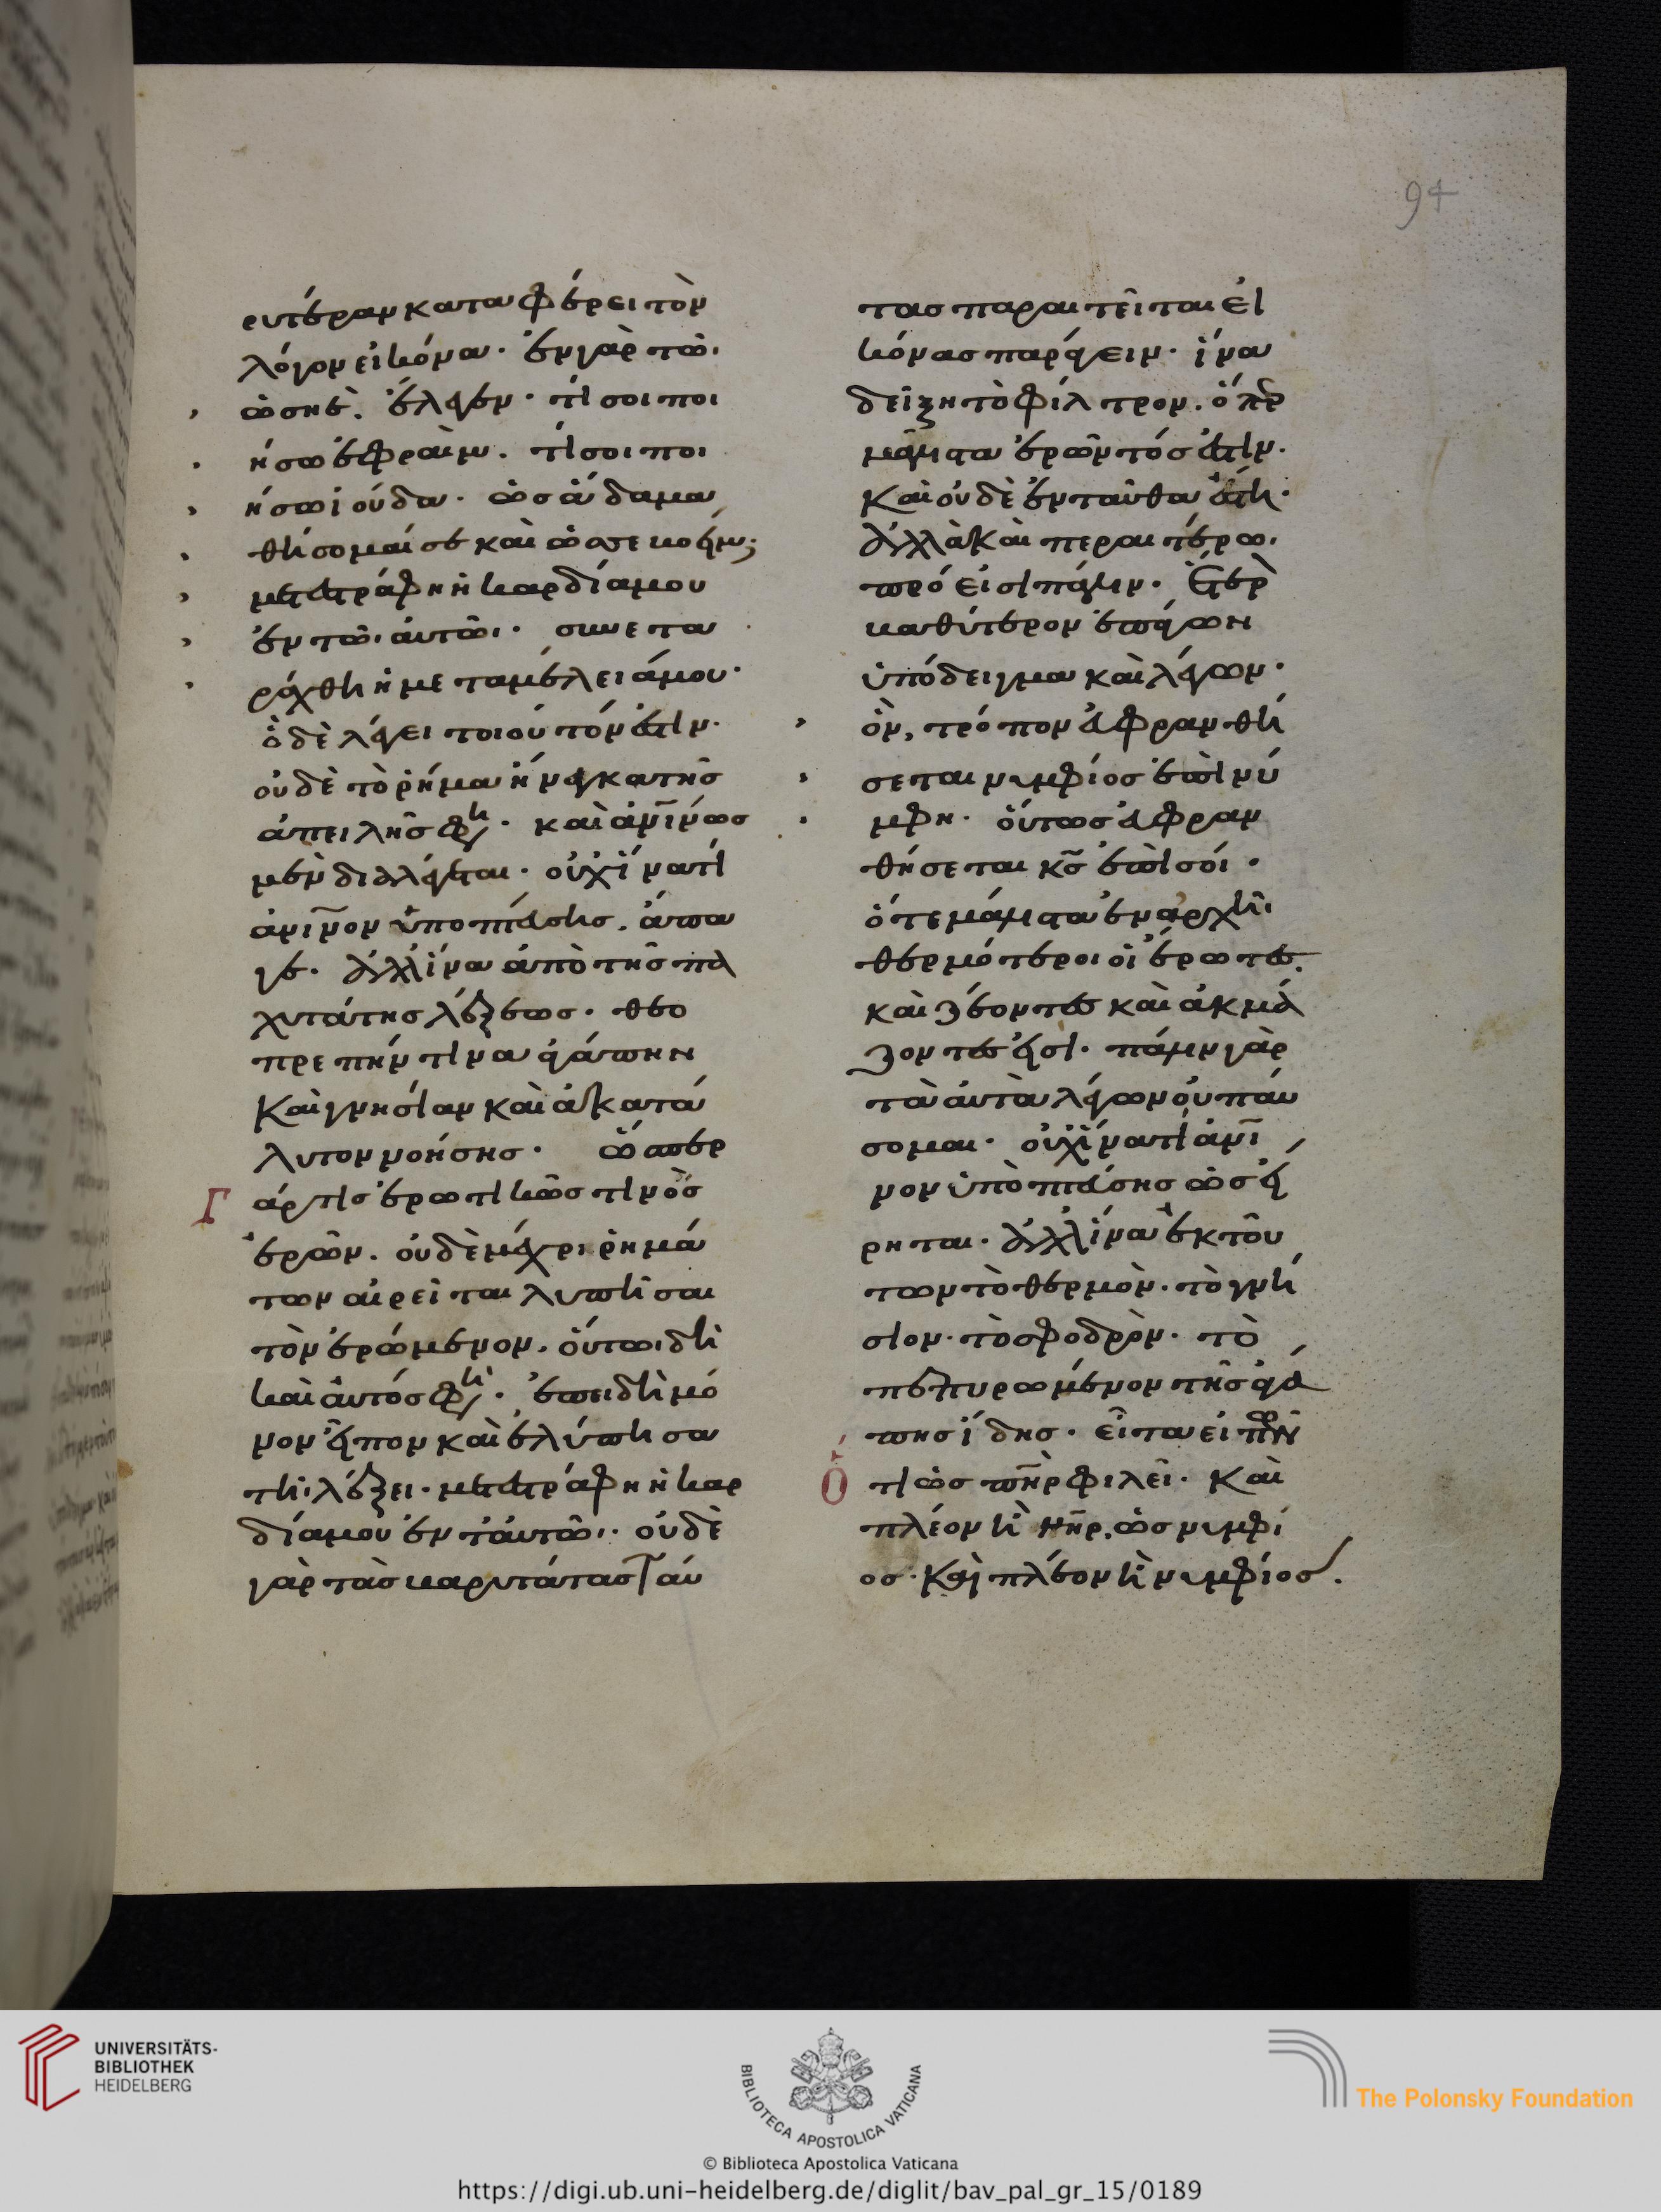 94
ρυτέραν καταφέρει τὸν
λόγον εἰκόνα· ἐν γὰρ τῶι
ὡσηὲ. ἔλεγεν· τί σοι ποι
ήσω ἐφραΐμ. τί σοι ποι
ήσω ἰούδα· ὡς ἄδαμα
θήσομαί σε καὶ ὡσ
μετεστράφη ἡ καρδία μου
ἐν τῶι αὐτῶι· συνετα
ράχθη ἡ μεταμέλειά μου·
ὃ δὲ λέγει τοιοῦτόν ἐστιν·
οὐδὲ τὸ ῥῆμα ἤνεγκα τῆς
ἀπειλῆς φη· καὶ
μὲν διαλέγεται· οὐχ ἵνα τί
ὑποπτεύσης. ἄπα
γε· ἀλλ ἵνα ἀπὸ τῆς πα
χυτάτης λέξεως· θεο
πρεπῆν τινα ἀγάπην
καὶ γνησίαν καὶ ἀκατά
λυτον νοήσης· ὥσπερ
γάρ τις ἐρωτικῶς τινὸς
ἐρῶν. οὐδὲ μέχρι ῥημά
των αἱρεῖται λυπῆσαι
τὸν ἐρώμενον. οὕτωι δὴ
καὶ αὐτός φη· ἐπειδὴ μό
νον εἶπον καὶ ἐλύπησα
τῆι λέξει· μετεστράφη ἡ καρ
δία μου ἐν τ αὐτῶι· οὐδὲ
γὰρ τὰς παχυτάτας ταύ
τας παραιτεῖται εἰ
κόνας παράγειν· ἵνα
δείξη τὸ φίλτρον. ὅπερ
μάλιστα ἐρῶντός ἐστιν·
καὶ οὐδὲ ἐνταῦθα ἔστη·
ἀλλὰ καὶ περαιτέρω
πρόεισι πάλιν· ἕτερ
καθύτερον ἐπάγων
ὑπόδειγμα καὶ λέγων·
ὃν, τρόπον εὐφρανθή
σεται νυμφίος ἐπὶ νύ
μφη· οὕτως εὐφραν
θήσεται κς ἐπὶ σοί·
ὅτε μάλιστα ἐν ἀρχῆι
θερμότεροι οἱ ἔρωτες.
καὶ ζέοντες καὶ ἀκμά
ζοντες εἰσὶ· πάλιν γὰρ
τὰ αὐτὰ λέγων οὐ παύ
σομαι· οὐχ ἵνα τί ἀνι
νον ὑποπτεύσης ὡς εἴ
ρηται· ἀλλ ἵνα ἐκ τού
των τὸ θερμὸν· τὸ γνή
σιον· τὸ σφοδρὸν· τὸ
πεπυρωμένον τῆς ἀγά
πης ἴδης· εἶτα εἰπὼν
ὅτι ὡς πηρ φιλεῖ· καὶ
πλέον ἢ μηρ. ὡς νυμφί
ος· καὶ πλέον ἢ νυμφίος.
UNIVERSITÄTS-
BIBLIOTHEK
HEIDELBERG
BIBLIOTECA APOSTOLICA VATICANA
The Polonsky Foundation
© Biblioteca Apostolica Vaticana
https://digi.ub.uni-heidelberg.de/diglit/bav_pal_gr_15/0189